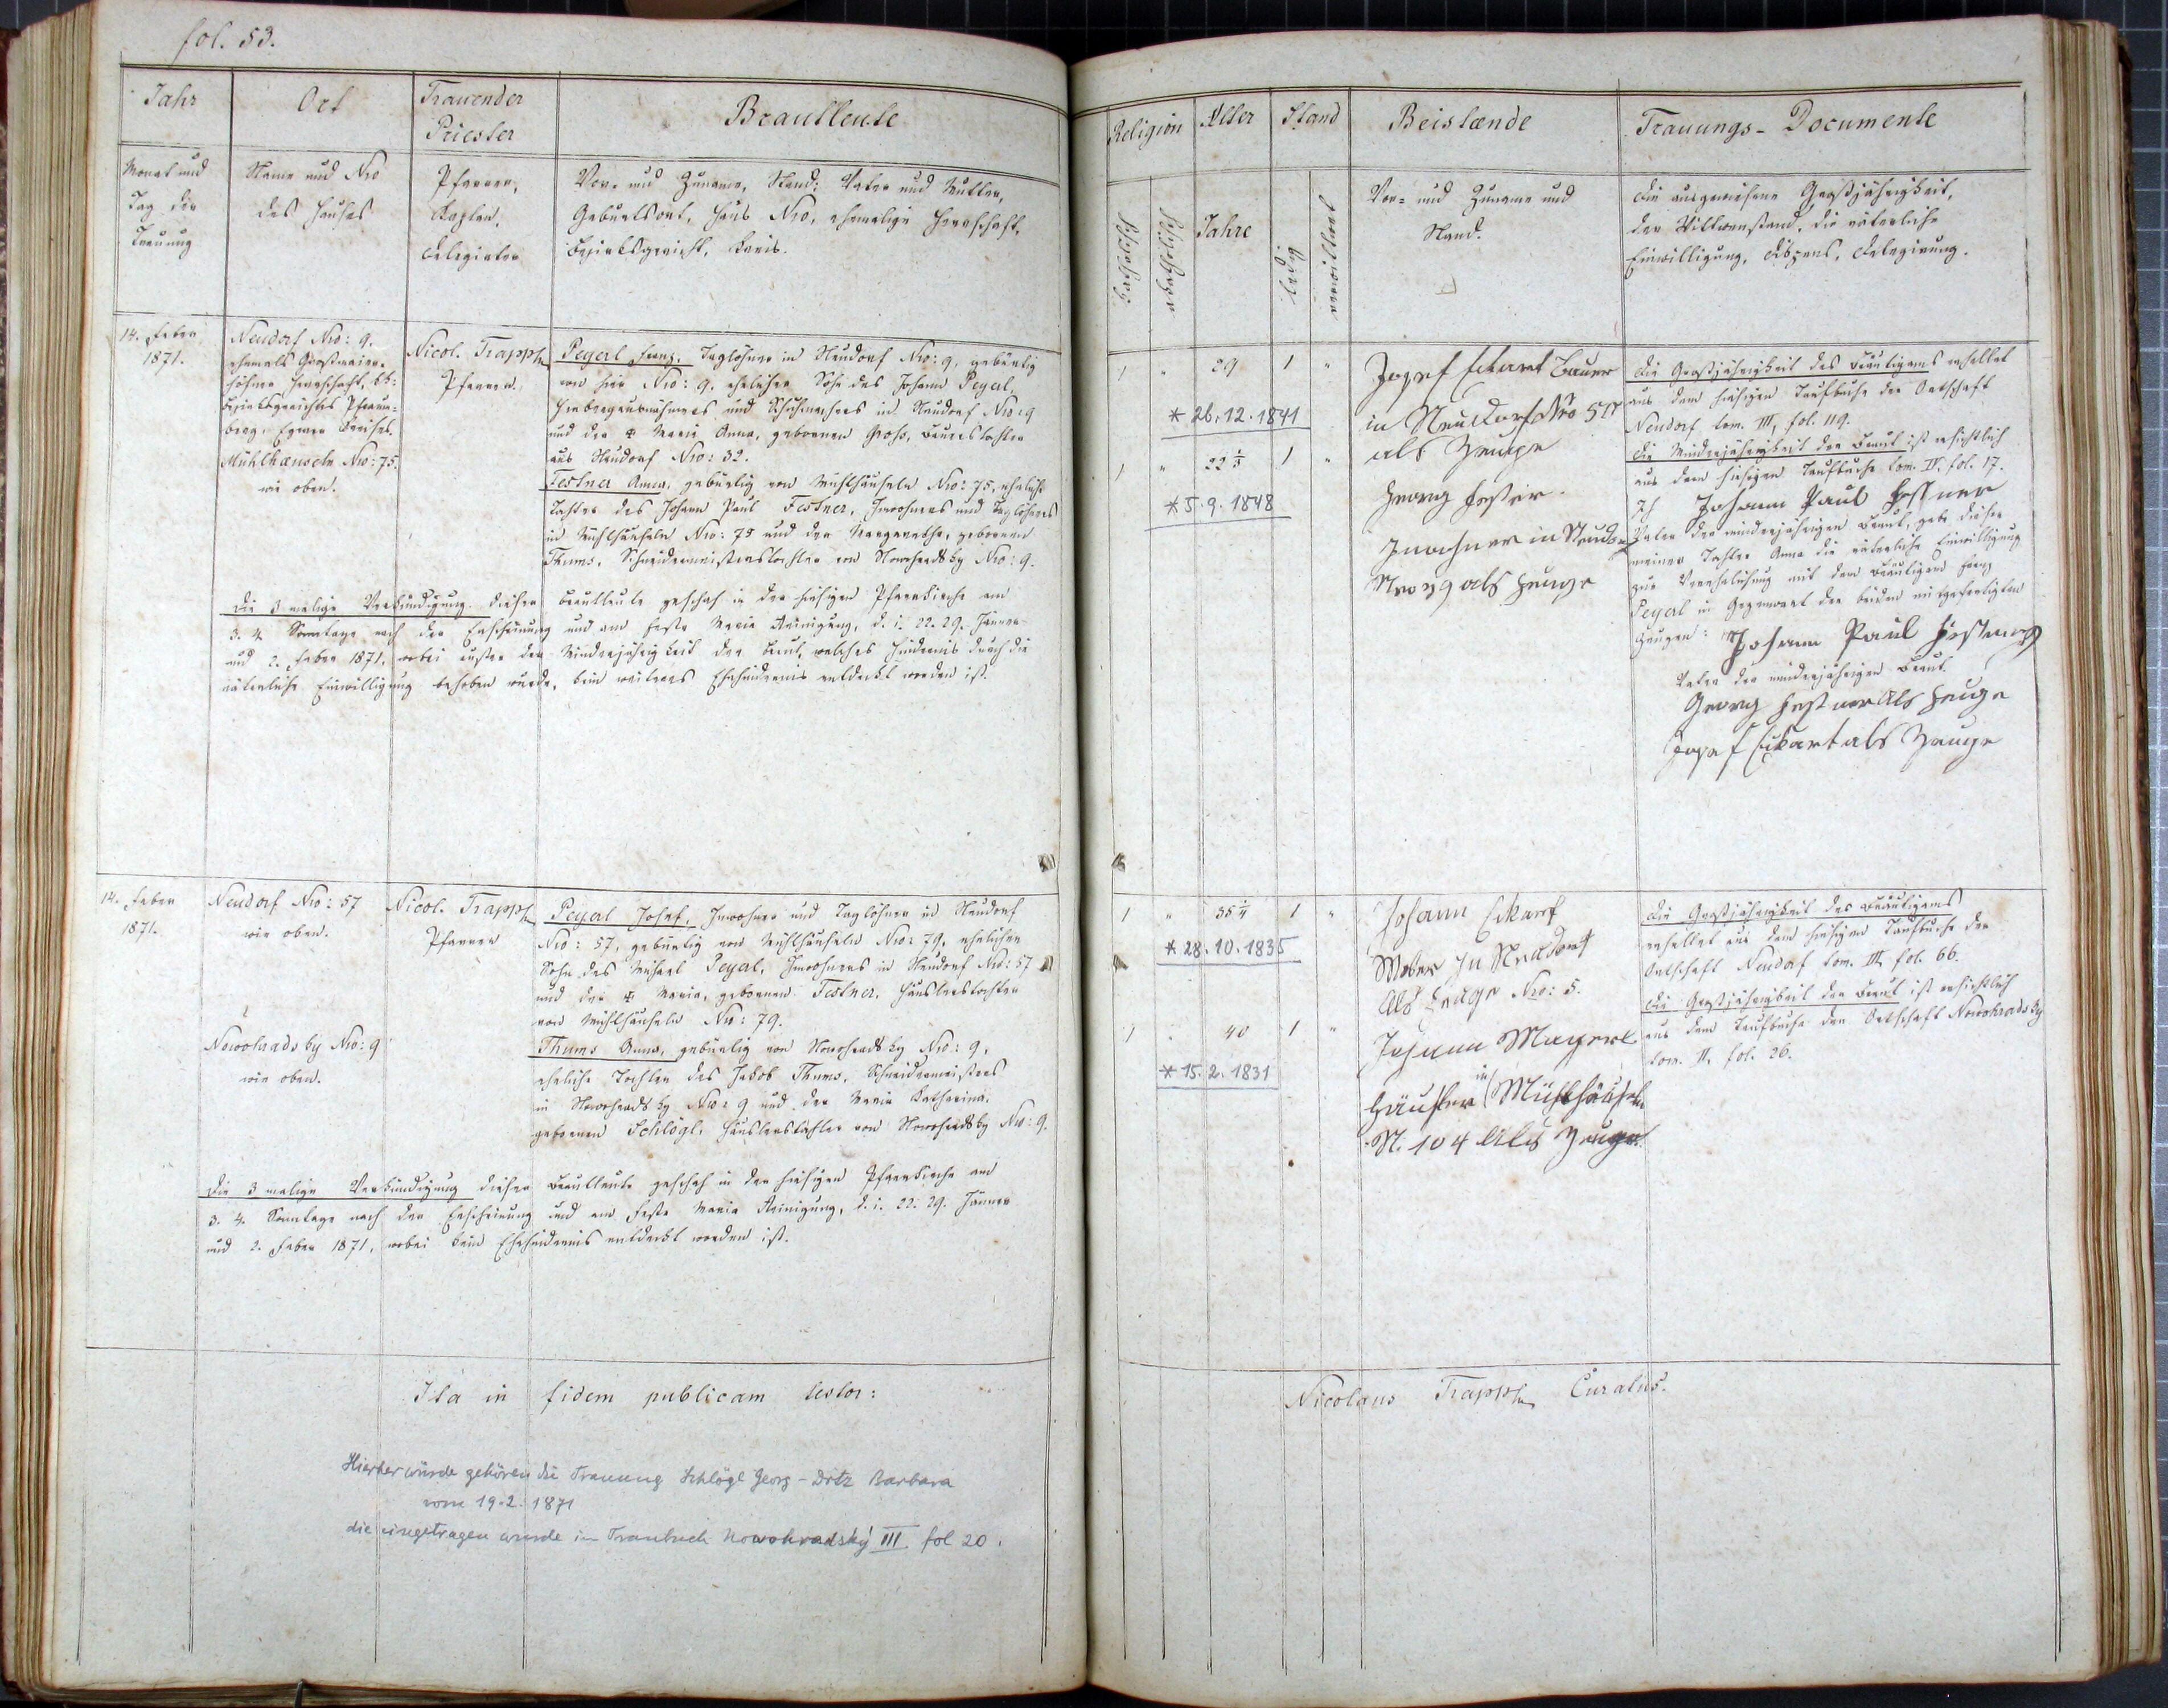 fol. 53.
Jahr
Ort
Trauender
Priester
Brautleute
Monat und
Tag der
Trauung
Name und Nro
des Hauses
Pfarrer,
Kaplan,
Delegirter
Vor- und Zuname, Stand; Vater und Mutter,
Geburtsort, Haus Nro, ehemalige Herrschaft,
Bezirksgericht, Kreis.
14. Feber
1871.
Neudorf Nro: 9.
ehemals Großmaier-
höfner Herrschaft, kk:
Bezirksgerichtes Pfraum-
berg, Egerer Kreises.
Mühlhaeuseln Nro: 75.
wie oben.
Nicol. Trapph
Pfarrer.
Peyerl Franz, Taglöhner in Neudorf Nro: 9, gebürtig
von hier Nro: 9, ehelicher Sohn des Johann Peyerl,
und Schuhmachers in Neudorf Nro: 9
und der ✠ Maria Anna, gebornen Groß, Bauerstochter
aus Neudorf Nro: 32.
Festner Anna, gebürtig von Mühlhäuseln Nro: 75, eheliche
Tochter des Johann Paul Festner, Inwohners und Taglöhners
in Mühlhäuseln Nro: 75 und der Margaretha, gebornen
Thums, Schneidermeisterstochter von Nowohradsky Nro: 9.
Die 3 malige Verkündigung dieser Brautleute geschah in der hiesigen Pfarrkirche am
3. 4. Sonntage nach der Erscheinung und am Feste Maria Reinigung, d. i. 22. 29. Jänner
und 2. Feber 1871, wobei außer der Minderjährigkeit der Braut, welches Hindernis durch die
väterliche Einwilligung behoben wurde, kein weiteres Ehehindernis entdeckt worden ist.
14. Feber
1871.
Neudorf Nro: 57
wie oben.
Nowohradsky Nro: 9
wie oben.
Nicol. Trapph
Pfarrer
Peyerl Josef, Inwohner und Taglöhner in Neudorf
Nro: 57, gebürtig von Mühlhäuseln Nro: 79, ehelicher
Sohn des Michael Peyerl, Inwohners in Neudorf Nro: 57
und der ✠ Maria, gebornen Festner, Häuslerstochter
von Mühlhäuseln Nro: 79.
Thums Anna, gebürtig von Nowohradsky Nro: 9,
eheliche Tochter des Jakob Thums, Schneidermeisters
in Nowohradsky Nro: 9 und der Maria Katharina,
gebornen Schlögl, Häuslerstochter von Nowohradsky Nro: 9.
Die 3 malige Verkündigung dieser Brautleute geschah in der hiesigen Pfarrkirche am
3. 4. Sonntage nach der Erscheinung und am Feste Maria Reinigung, d. i. 22. 29. Jänner
und 2. Feber 1871, wobei kein Ehehindernis entdeckt worden ist.
Ita in fidem publicam testor:
Hierher würde gehören die Trauung Schlögl Georg - Dotz Barbara
vom 19.2.1871
die eingetragen wurde im Traubuch Nowohradský III fol 20.
Religion
Alter
Stand
Beistænde
Trauungs-Documente
katholisch
akatholisch
Jahre
ledig
verwittwet
Vor- und Zuname und
Stand.
Die ausgewiesene Großjährigkeit,
der Wittwenstand, die väterliche
Einwilligung, Dispens, Delegirung.
1 " 29 1 "
* 26.12.1841
1 " 22 ⅓ 1 "
* 5.9.1848
Josef Eckart Bauer
in Neudorf Nro 57
als Zeuge
Georg Festner
Inwohner in Neudorf
Nro 39 als Zeuge
Die Großjährigkeit des Bräutigams erhellet
aus dem hiesigen Taufbuche der Ortschaft
Neudorf tom. III, fol. 119.
Die Minderjährigkeit der Braut ist ersichtlich
aus dem hiesigen Taufbuche tom. IV. fol. 17.
Ich Johann Paul Festner
Vater der minderjährigen Braut, gebe dieser
meiner Tochter Anna die väterliche Einwilligung
zur Verehelichung mit dem Bräutigam Franz
Peyerl in Gegenwart der beiden mitgefertigten
Zeugen: Johann Paul Festner
Vater der minderjährigen Braut.
Georg Festner als Zeuge
Josef Eckart als Zeuge
1 " 35 ¼ 1 "
* 28.10.1835
1 " 40 1 "
* 15.2.1831
Johann Eckart
Weber in Neudorf
Als Zeuge Nro: 5.
Johann Mayerl
Häusler in Mühlhäuseln
N. 104 als Zeuge.
Die Großjährigkeit des Bräutigams
erhellet aus dem hiesigen Taufbuche der
Ortschaft Neudorf tom. III. fol. 66.
Die Großjährigkeit der Braut ist ersichtlich
aus dem Taufbuche der Ortschaft Nowohradsky
tom. II. fol. 26.
Nicolaus Trapph Curatus.